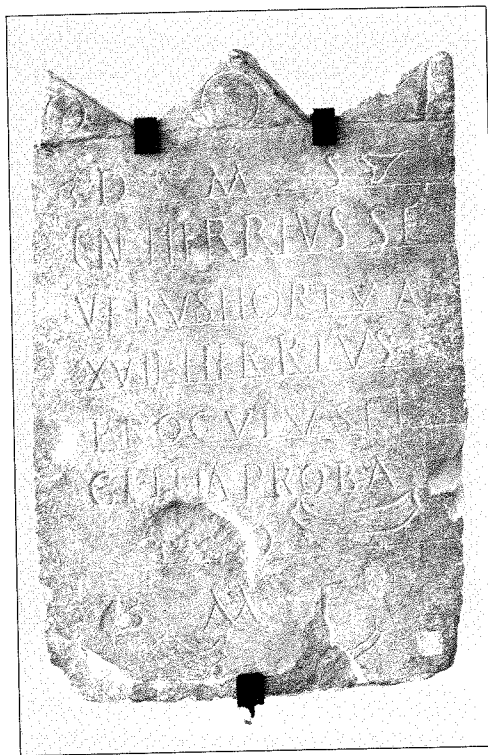 D M S
CN HERRIVS SE
VERVS HORT V A
XVII HERRIVS
PROCVLVS ET
GELLIA PROBA
B M